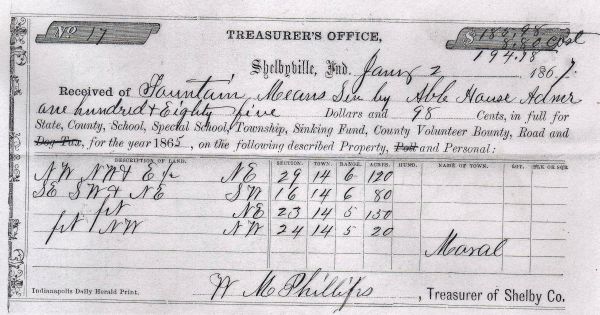 No 17 TREASURER'S OFFICE, $ 185,98
8.80 cost
194.78
Shelbyville, Ind. Jany 2 1867.
Received of Fountain Means Sen by Able House Admr
one hundred & Eighty five Dollars and 98 Cents, in full for
State, County, School, Special School, Township, Sinking Fund, County Volunteer Bounty, Road and
Dog Tax, for the year 1865, on the following described Property, Poll and Personal:
DESCRIPTION OF LAND. SECTION. TOWN. RANGE. ACRES. HUND. NAME OF TOWN. LOT. PLK OR SQR.
NW NW & E pt NE 29 14 6 120
SE SW & NE SW 16 14 6 80
pt NE 23 14 5 150
pt NW NW 24 14 5 20
Moral
Indianapolis Daily Herald Print. W M Phillips, Treasurer of Shelby Co.